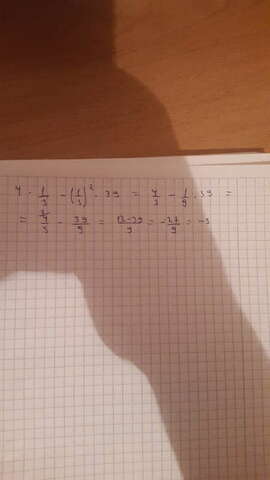 4 · 1/3 - (1/3)² · 39 = 4/3 - 1/9 · 39 =
= 4/3 - 39/9 = 12-39/9 = -27/9 = -3